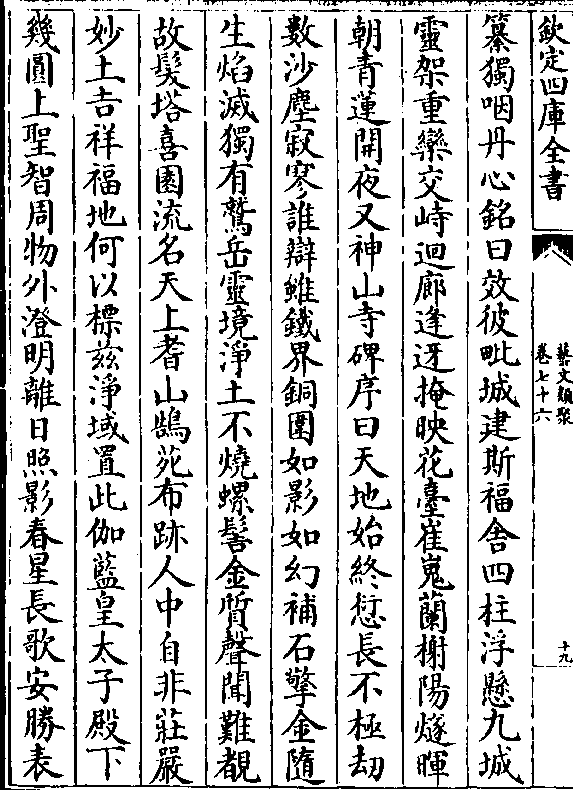 欽定四庫全書
藝文類聚
卷七十六
十九
纂獨咽丹心銘曰效彼毗城建斯福舍四柱浮懸九城
靈架重欒交峙迴廊逢迓掩映花臺崔嵬蘭榭陽燧暉
朝青蓮開夜又神山寺碑序曰天地始終愆長不極刧
數沙塵寂寥誰辯雖鐵界銅圍如影如幻補石擎金隨
生焰滅獨有鷲岳靈境淨土不燒螺髻金質聲聞難覩
故髮塔喜園流名天上耆山鵠苑布跡人中自非莊嚴
妙土吉祥福地何以標兹淨域置此伽藍皇太子殿下
幾圓上聖智周物外澄明離日照影春星長歌安勝表